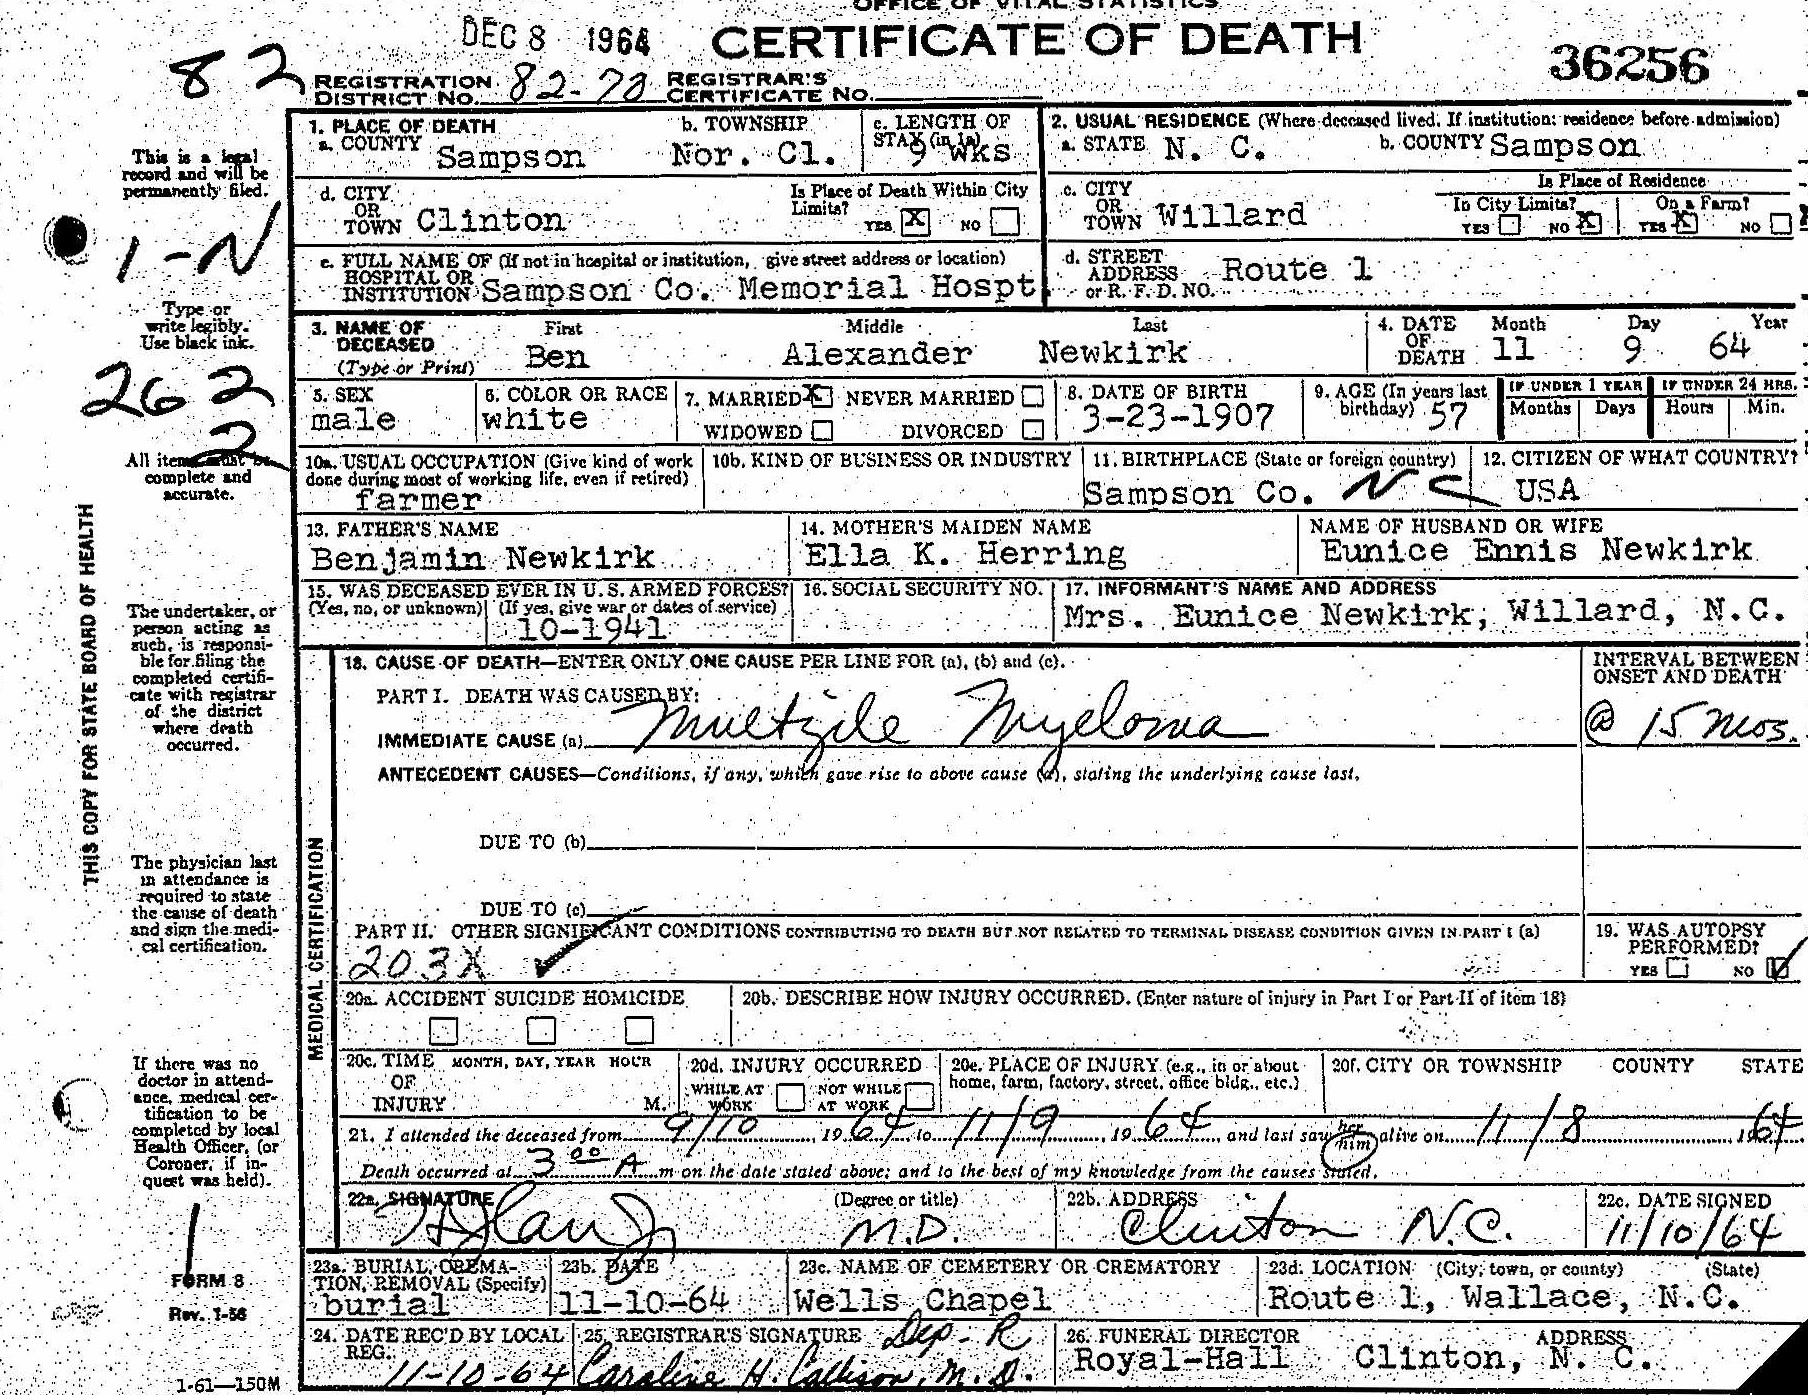 OFFICE OF VITAL STATISTICS
DEC 8 1964 CERTIFICATE OF DEATH 36256
82
REGISTRATION DISTRICT No. 82-73 REGISTRAR'S CERTIFICATE No.
This is a legal record and will be permanently filed.
1. PLACE OF DEATH
a. COUNTY Sampson
b. TOWNSHIP Nor. Cl.
c. LENGTH OF STAY (in 1a) 9 wks
2. USUAL RESIDENCE (Where deceased lived. If institution: residence before admission)
a. STATE N. C. b. COUNTY Sampson
d. CITY OR TOWN Clinton
Is Place of Death Within City Limits? YES X NO
c. CITY OR TOWN Willard
Is Place of Residence
In City Limits? YES NO X On a Farm? YES X NO
1-N
e. FULL NAME OF (If not in hospital or institution, give street address or location)
HOSPITAL OR INSTITUTION Sampson Co. Memorial Hospt.
d. STREET ADDRESS or R. F. D. NO. Route 1
Type or write legibly. Use black ink.
3. NAME OF DECEASED (Type or Print)
First Middle Last
Ben Alexander Newkirk
4. DATE OF DEATH Month Day Year
11 9 64
262
2
5. SEX male
6. COLOR OR RACE white
7. MARRIED X NEVER MARRIED
WIDOWED DIVORCED
8. DATE OF BIRTH 3-23-1907
9. AGE (In years last birthday) 57
IF UNDER 1 YEAR Months Days
IF UNDER 24 HRS. Hours Min.
All items must be complete and accurate.
10a. USUAL OCCUPATION (Give kind of work done during most of working life, even if retired)
farmer
10b. KIND OF BUSINESS OR INDUSTRY
11. BIRTHPLACE (State or foreign country)
Sampson Co. NC
12. CITIZEN OF WHAT COUNTRY?
USA
13. FATHER'S NAME
Benjamin Newkirk
14. MOTHER'S MAIDEN NAME
Ella K. Herring
NAME OF HUSBAND OR WIFE
Eunice Ennis Newkirk
15. WAS DECEASED EVER IN U. S. ARMED FORCES?
(Yes, no, or unknown) (If yes, give war or dates of service)
10-1941
16. SOCIAL SECURITY NO.
17. INFORMANT'S NAME AND ADDRESS
Mrs. Eunice Newkirk, Willard, N.C.
THIS COPY FOR STATE BOARD OF HEALTH
The undertaker, or person acting as such, is responsible for filing the completed certificate with registrar of the district where death occurred.
MEDICAL CERTIFICATION
18. CAUSE OF DEATH—ENTER ONLY ONE CAUSE PER LINE FOR (a), (b) and (c).
INTERVAL BETWEEN ONSET AND DEATH
PART I. DEATH WAS CAUSED BY:
IMMEDIATE CAUSE (a) Multiple Myeloma @ 15 mos.
ANTECEDENT CAUSES—Conditions, if any, which gave rise to above cause (a), stating the underlying cause last.
DUE TO (b)
DUE TO (c)
The physician last in attendance is required to state the cause of death and sign the medical certification.
PART II. OTHER SIGNIFICANT CONDITIONS CONTRIBUTING TO DEATH BUT NOT RELATED TO TERMINAL DISEASE CONDITION GIVEN IN PART I (a)
203X ✓
19. WAS AUTOPSY PERFORMED?
YES NO ✓
20a. ACCIDENT SUICIDE HOMICIDE
20b. DESCRIBE HOW INJURY OCCURRED. (Enter nature of injury in Part I or Part II of item 18)
20c. TIME OF INJURY MONTH, DAY, YEAR HOUR M.
20d. INJURY OCCURRED
WHILE AT WORK NOT WHILE AT WORK
20e. PLACE OF INJURY (e.g., in or about home, farm, factory, street, office bldg., etc.)
20f. CITY OR TOWNSHIP COUNTY STATE
If there was no doctor in attendance, medical certification to be completed by local Health Officer, (or Coroner, if inquest was held).
21. I attended the deceased from 9/10 1964 to 11/9, 1964, and last saw her him alive on 11/8, 1964
Death occurred at 3 00 A m on the date stated above; and to the best of my knowledge from the causes stated.
22a. SIGNATURE
(Degree or title) M.D.
22b. ADDRESS Clinton N.C.
22c. DATE SIGNED 11/10/64
1
FORM 8
Rev. 1-56
1-61—150M
23a. BURIAL, CREMATION, REMOVAL (Specify)
burial
23b. DATE
11-10-64
23c. NAME OF CEMETERY OR CREMATORY
Wells Chapel
23d. LOCATION (City, town, or county) (State)
Route 1, Wallace, N.C.
24. DATE REC'D BY LOCAL REG.
11-10-64
25. REGISTRAR'S SIGNATURE Dep-R
Caroline H. Callison, M.D.
26. FUNERAL DIRECTOR ADDRESS
Royal-Hall Clinton, N. C.